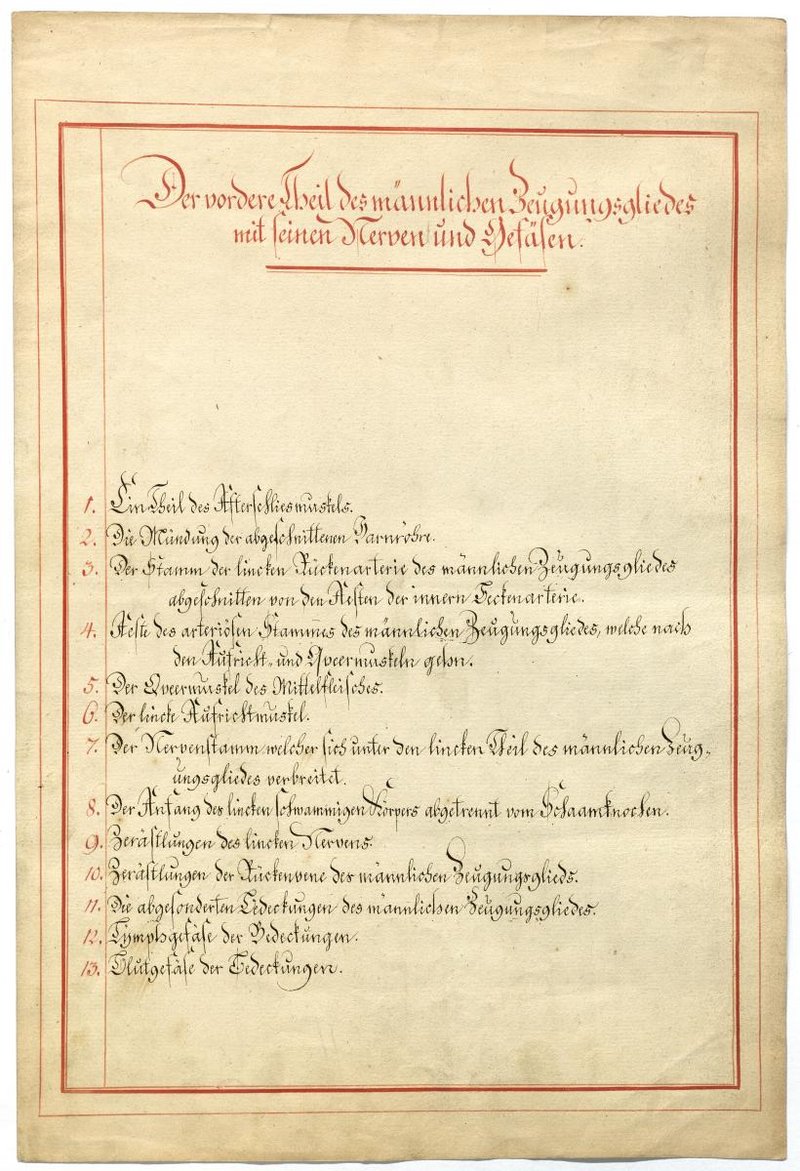 Der vordere Theil des männlichen Zeugungsgliedes
mit seinen Nerven und Gefäsen.
1. Ein Theil des Afterschliesmuskels.
2. Die Mündung der abgeschnittenen Harnröhre.
3. Der Stamm der lincken Rückenarterie des männlichen Zeugungsgliedes
abgeschnitten von den Aesten der innern Beckenarterie.
4. Aeste des arteriösen Stammes des männlichen Zeugungsgliedes, welche nach
den Aufricht- und Qveermuskeln gehn.
5. Der Qveermuskel des Mittelfleisches.
6. Der lincke Aufrichtmuskel.
7. Der Nervenstamm welcher sich unter den lincken Theil des männlichen Zeug-
ungsgliedes verbreitet.
8. Der Anfang des lincken schwammigen Körpers abgetrennt vom Schaamknochen.
9. Zerästlungen des lincken Nervens.
10. Zerästlungen der Rückenvene des männlichen Zeugungsglieds.
11. Die abgesonderten Bedeckungen des männlichen Zeugungsgliedes.
12. Lymphgefäse der Bedeckungen.
13. Blutgefäse der Bedeckungen.